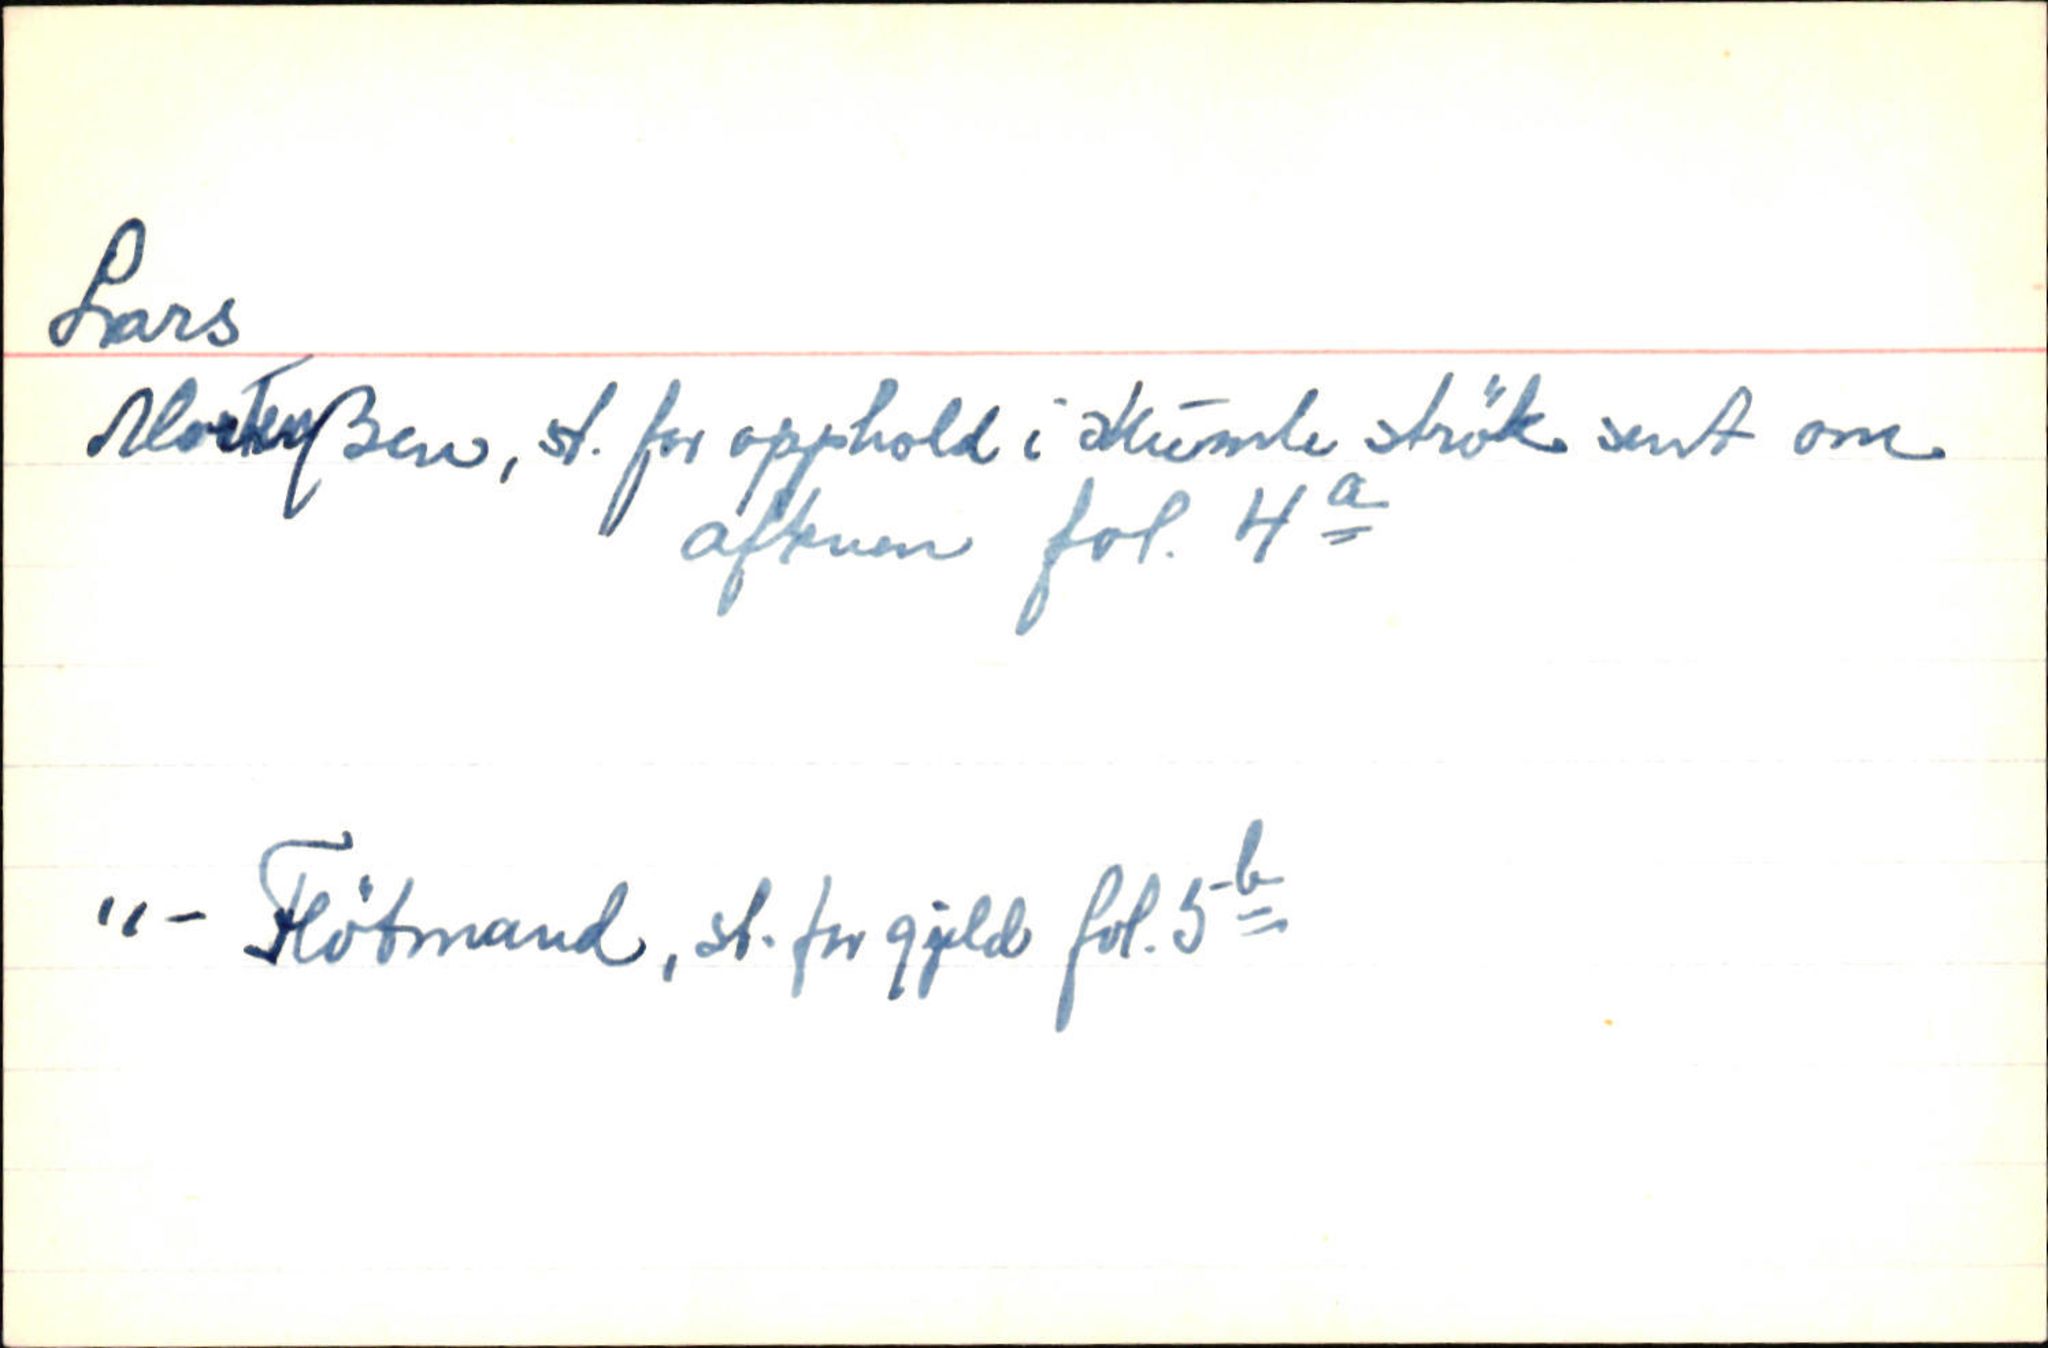 Lars
Morteßen, st. for opphold i skumle strök sent om
aftenen fol. 4a
"- Flötmand, st. for gjeld fol. 5b